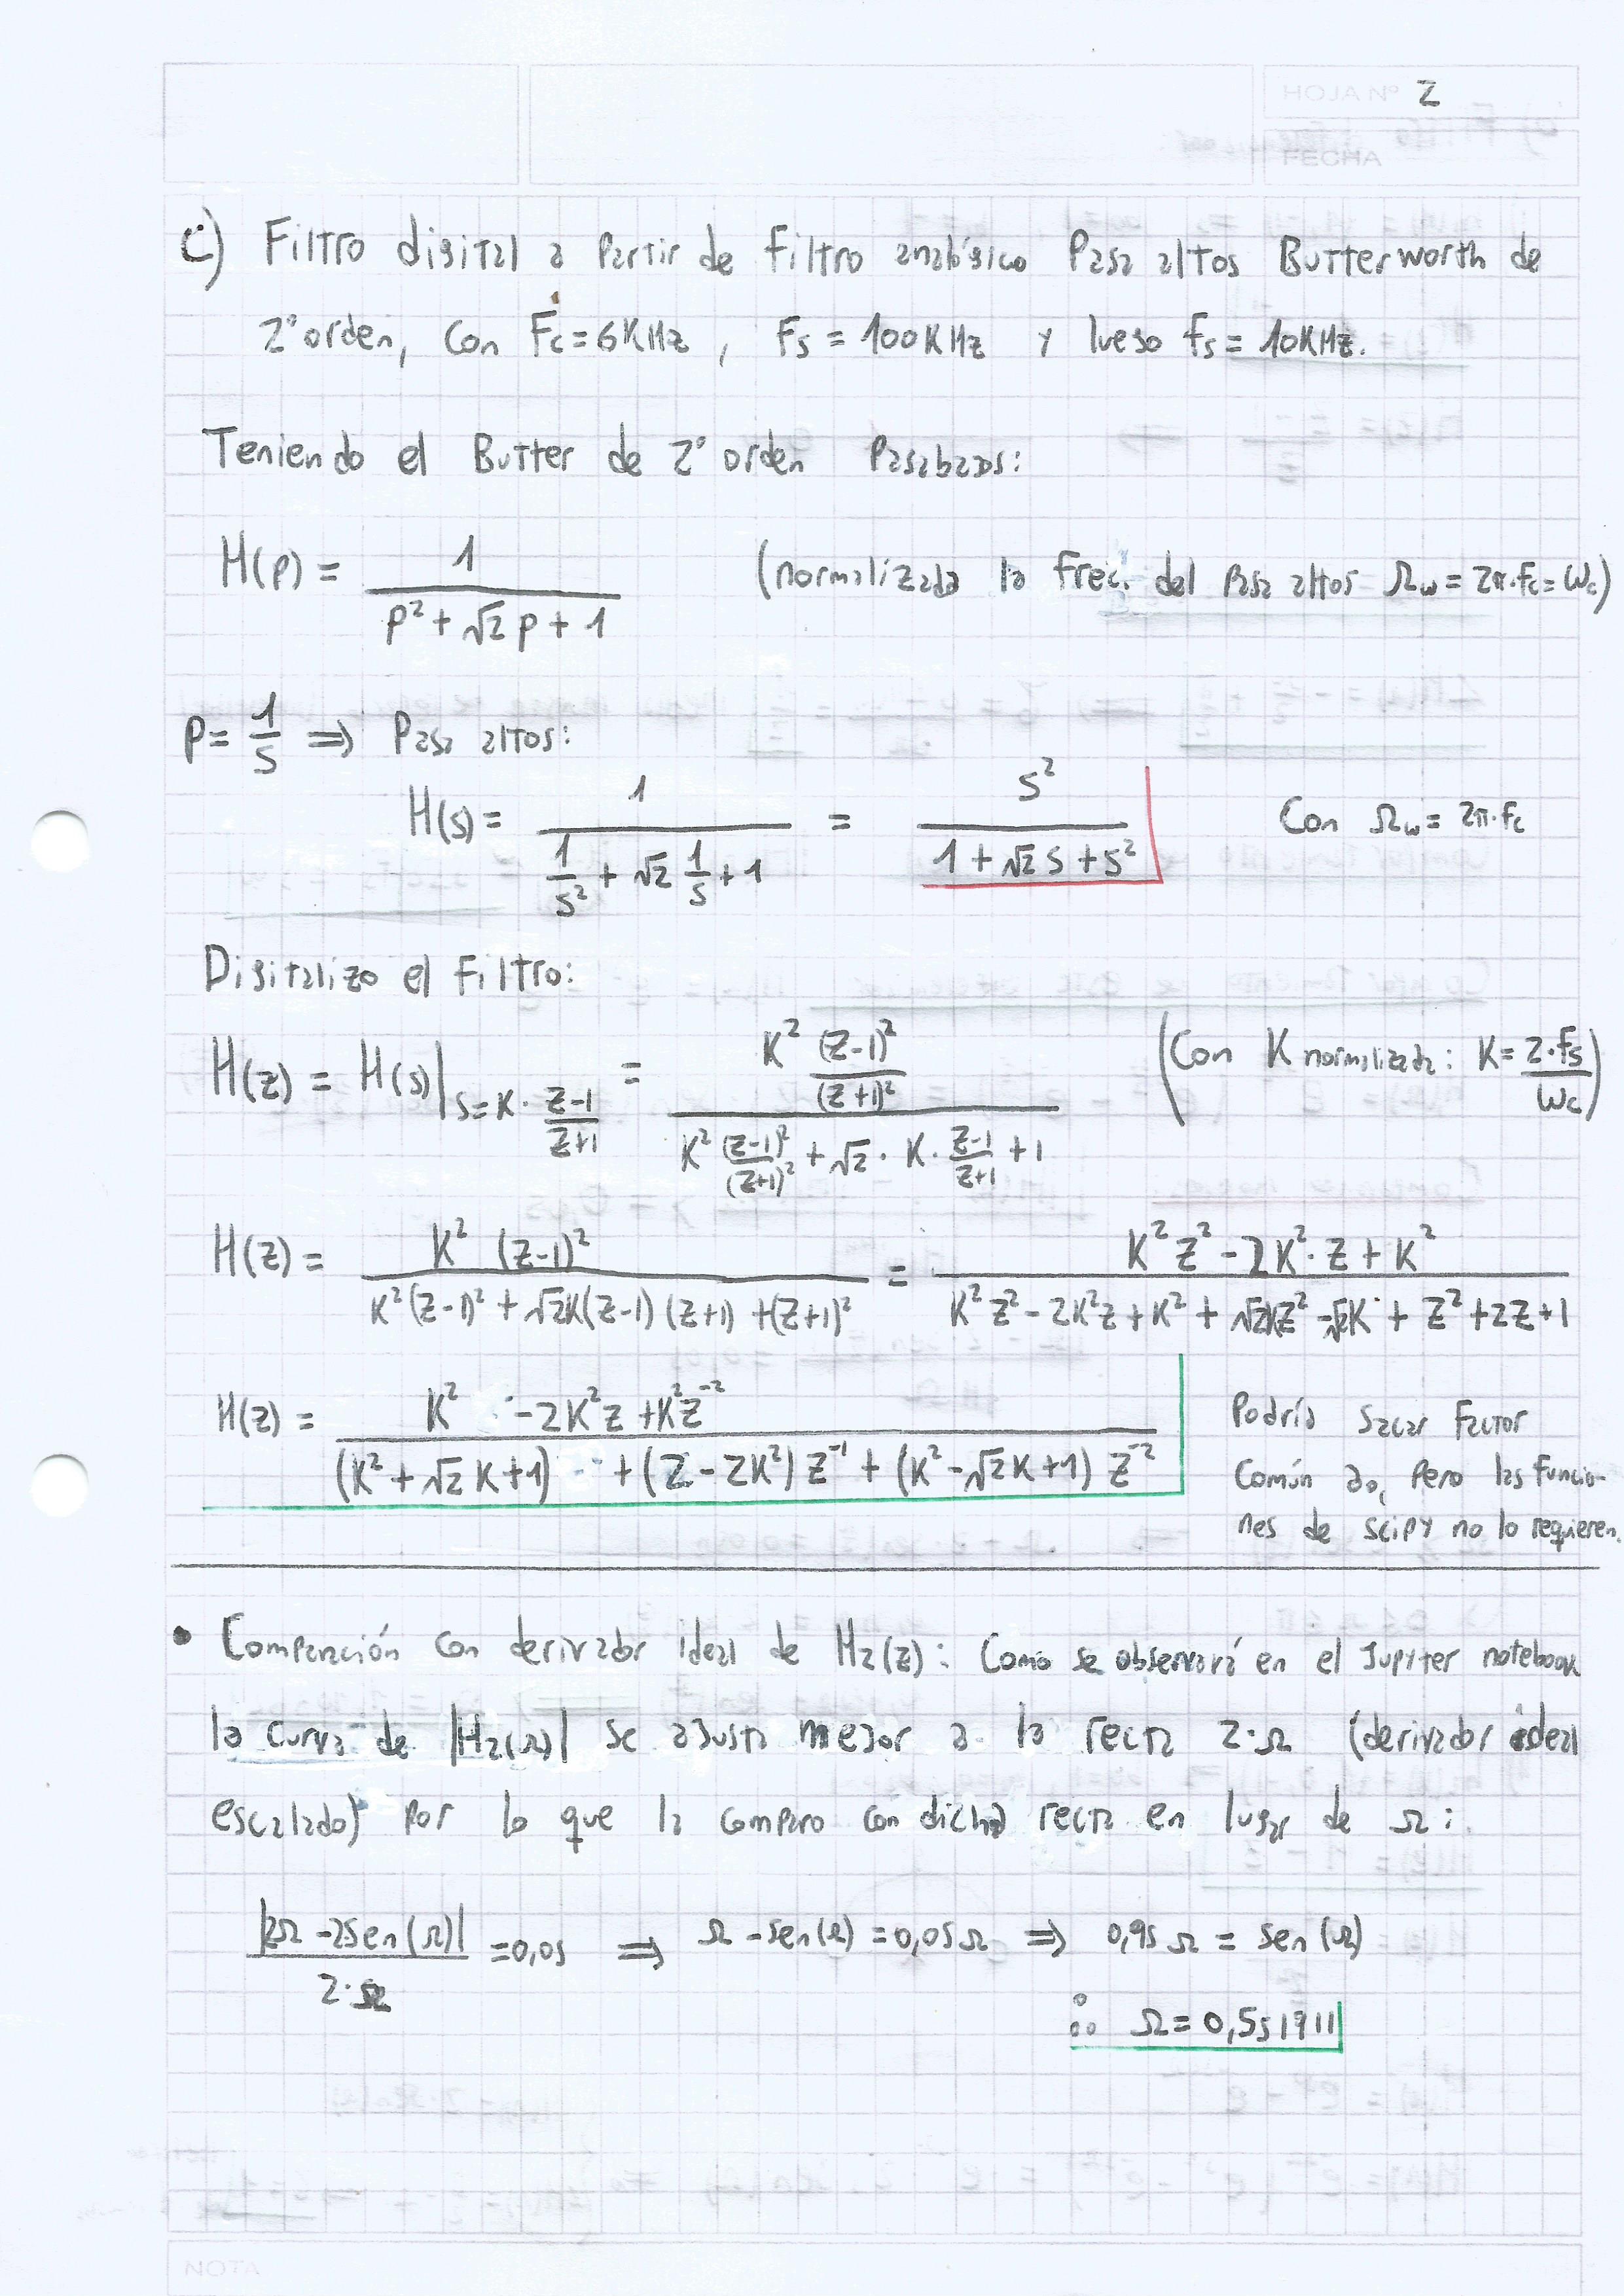 HOJA Nº 2
FECHA
C) Filtro digital a partir de filtro analógico Pasa altos Butterworth de
2° orden, con Fc = 6KHz, Fs = 100KHz y luego fs = 10KHz.
Teniendo el Butter de 2° orden Pasabajos:
H(p) = 1 / (p² + √2 p + 1) (normalizada la frec. del pasa altos Ωw = 2π·fc = ωc)
p = 1/s ⇒ Pasa altos:
H(s) = 1 / (1/s² + √2 1/s + 1) = s² / (1 + √2 s + s²) Con Ωw = 2π·fc
Digitalizo el Filtro:
H(z) = H(s)|s=K·(z-1)/(z+1) = (K² (z-1)²/(z+1)²) / (K² (z-1)²/(z+1)² + √2 · K · (z-1)/(z+1) + 1) (Con K normalizada: K = 2·fs/ωc)
H(z) = K² (z-1)² / (K²(z-1)² + √2K(z-1)(z+1) + (z+1)²) = (K²z² - 2K²·z + K²) / (K²z² - 2K²z + K² + √2Kz² - √2K + z² + 2z + 1)
H(z) = (K² - 2K²z + K²z⁻²) / ((K² + √2K + 1) + (2 - 2K²) z⁻¹ + (K² - √2K + 1) z⁻²)
Podría sacar factor
común a₀, pero las funcio-
nes de scipy no lo requieren.
• Comparación con derivador ideal de H₂(z): Como se observará en el Jupiter notebook
la curva de |H₂(Ω)| se ajusta mejor a la recta 2·Ω (derivador ideal
escalado) por lo que la comparo con dicha recta en lugar de Ω:
|2Ω - 2sen(Ω)| / 2·Ω = 0,05 ⇒ Ω - sen(Ω) = 0,05Ω ⇒ 0,95Ω = sen(Ω)
∴ Ω = 0,551911
NOTA